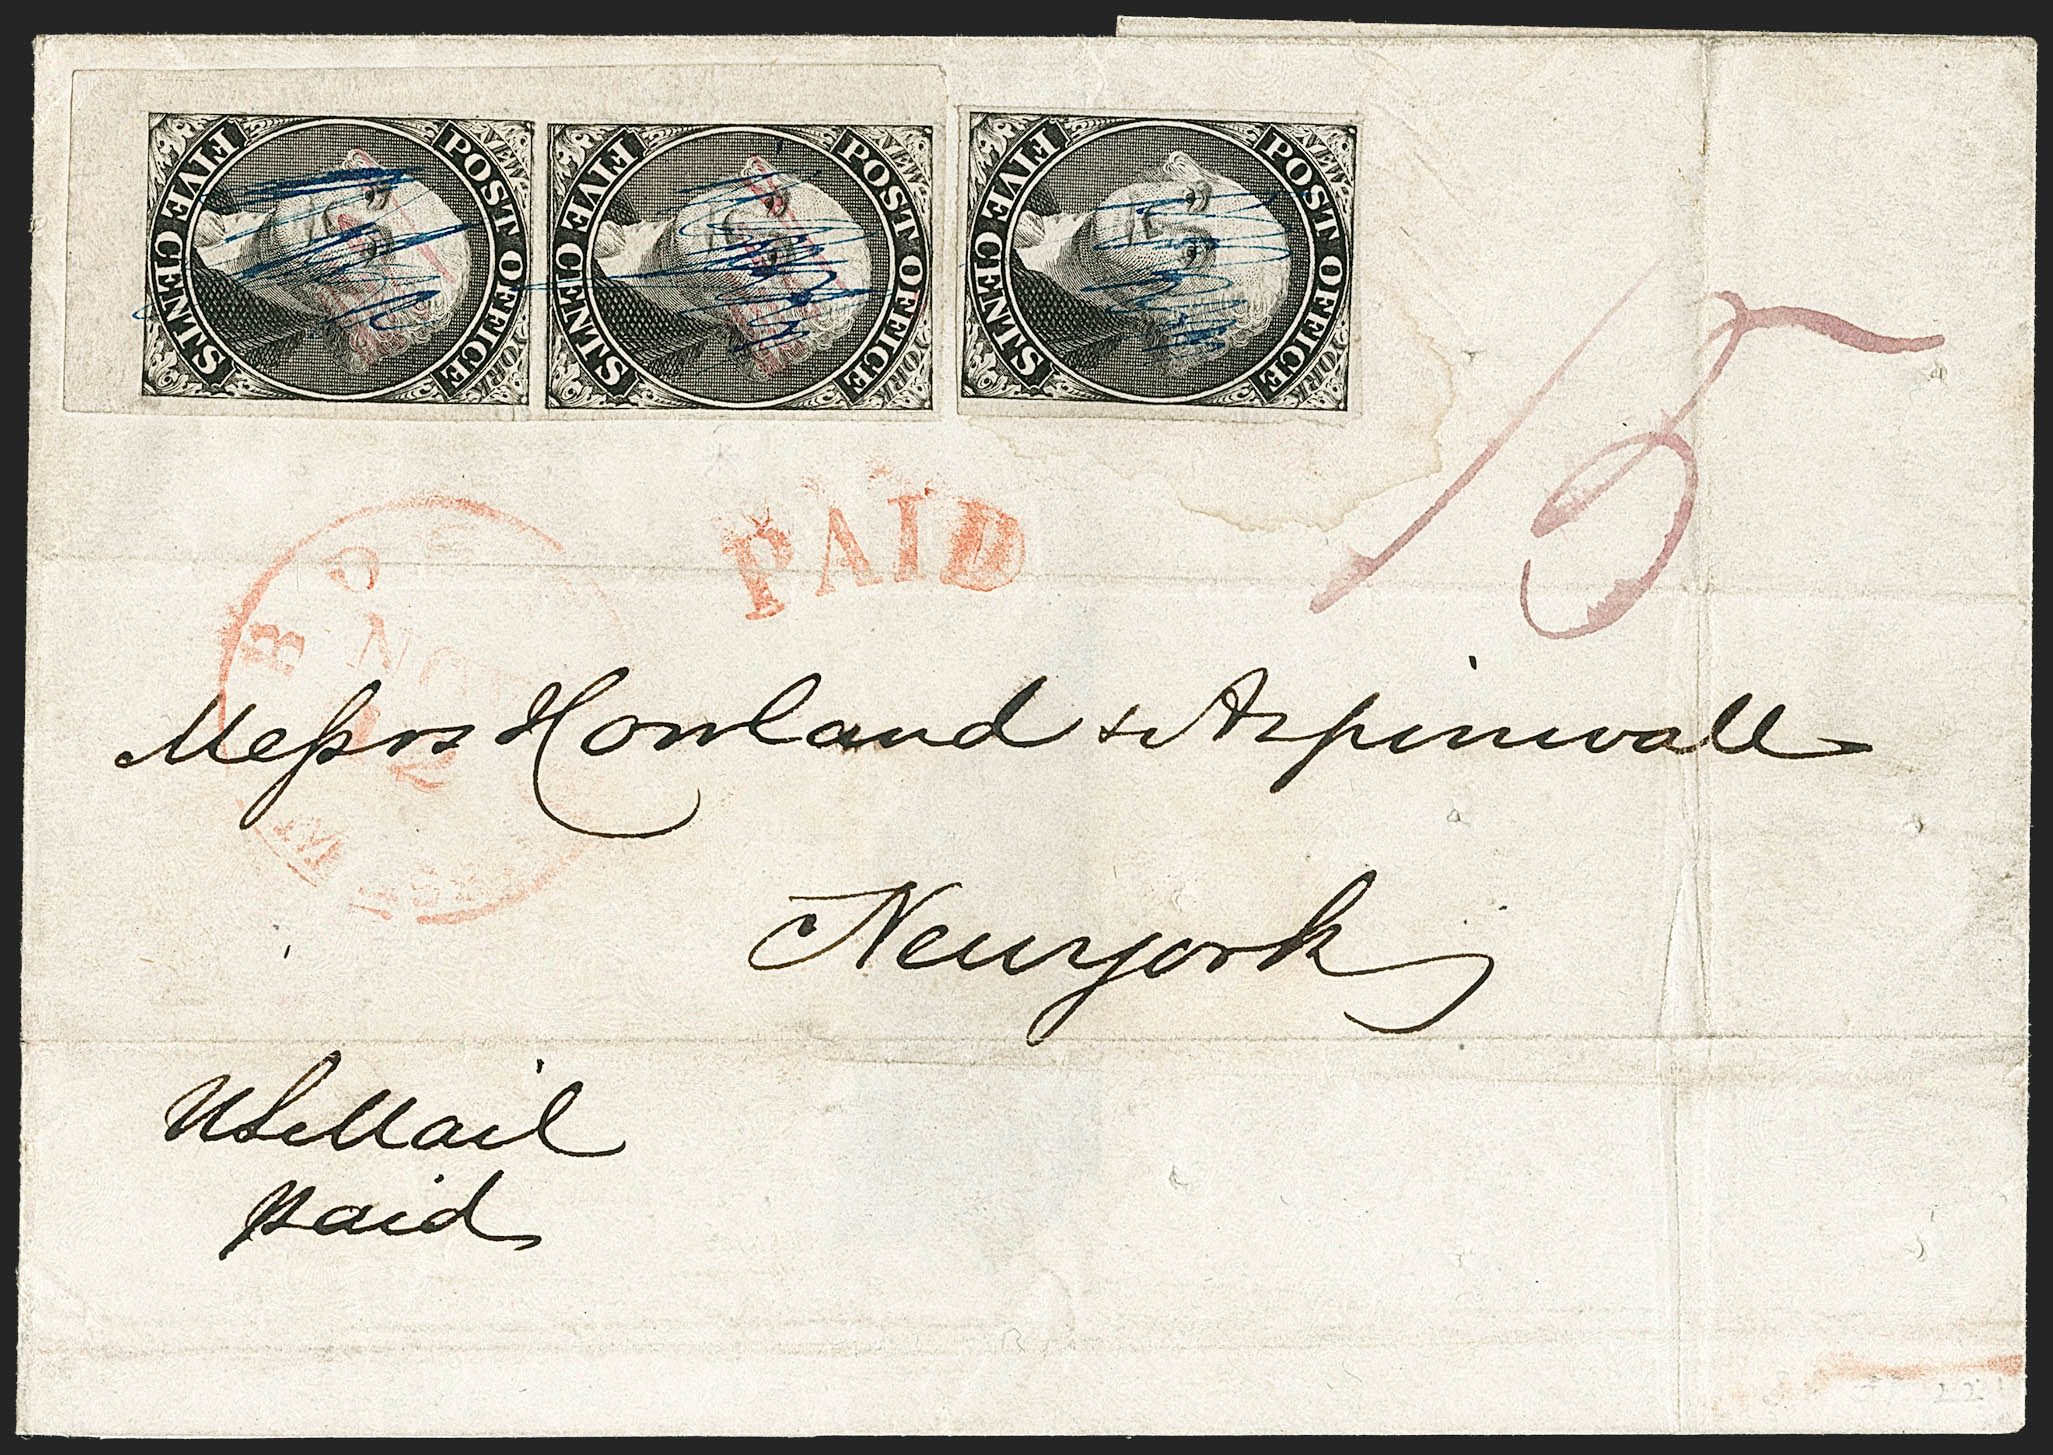 FIVE CENTS POST OFFICE NEW YORK
FIVE CENTS POST OFFICE NEW YORK
FIVE CENTS POST OFFICE NEW YORK
15
PAID
BOS
Messrs Howland & Aspinwall
New york
US Mail
paid